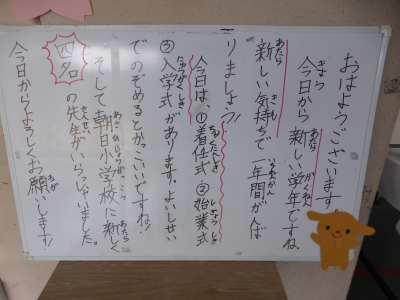 おはようございます。
今日から新しい学年ですね。
新しい気持ちで一年間がんば
りましょう!
今日は、①着任式 ②始業式
③入学式があります。よいしせい
でのぞめるとかっこいいですね!
そして朝日小学校に新しく
四名の先生がいらっしゃいました。
今日からよろしくお願いします!